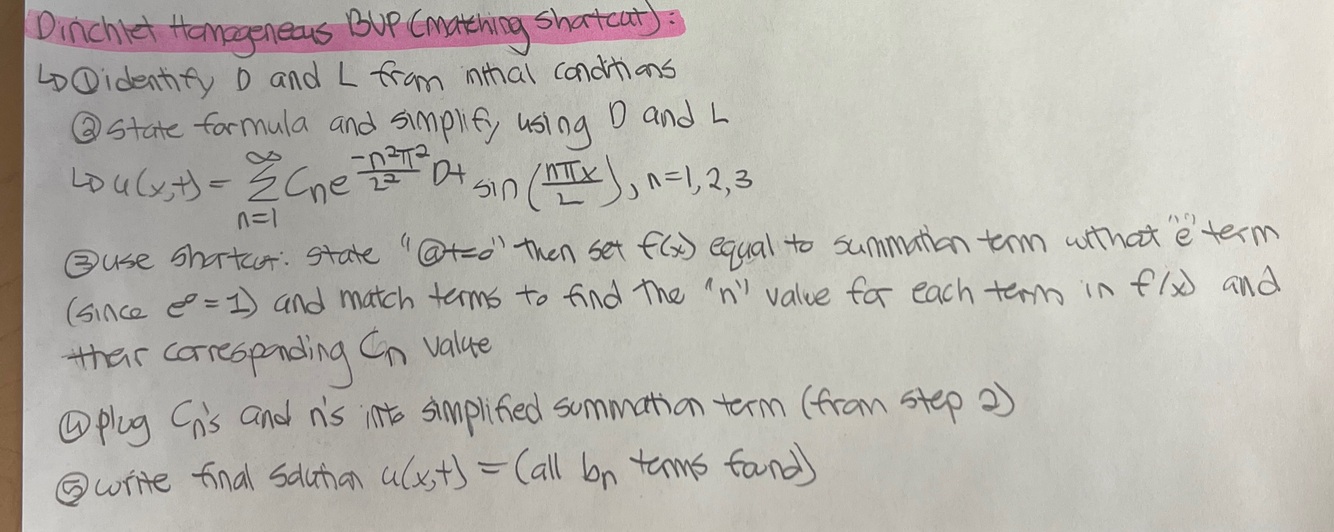 Dirichlet Homogeneous BVP (matching shortcut):
↳ ① identify D and L from initial conditions
② state formula and simplify using D and L
↳ u(x,t) = ∞∑n=1 Cn e^(-n²π²/L² Dt) sin(nπx/L), n=1,2,3
③ use shortcut: state "@t=0" then set f(x) equal to summation term without "e" term
(since e⁰=1) and match terms to find the "n" value for each term in f(x) and
their corresponding Cn value
④ plug Cn's and n's into simplified summation term (from step 2)
⑤ write final solution u(x,t) = (all bn terms found)